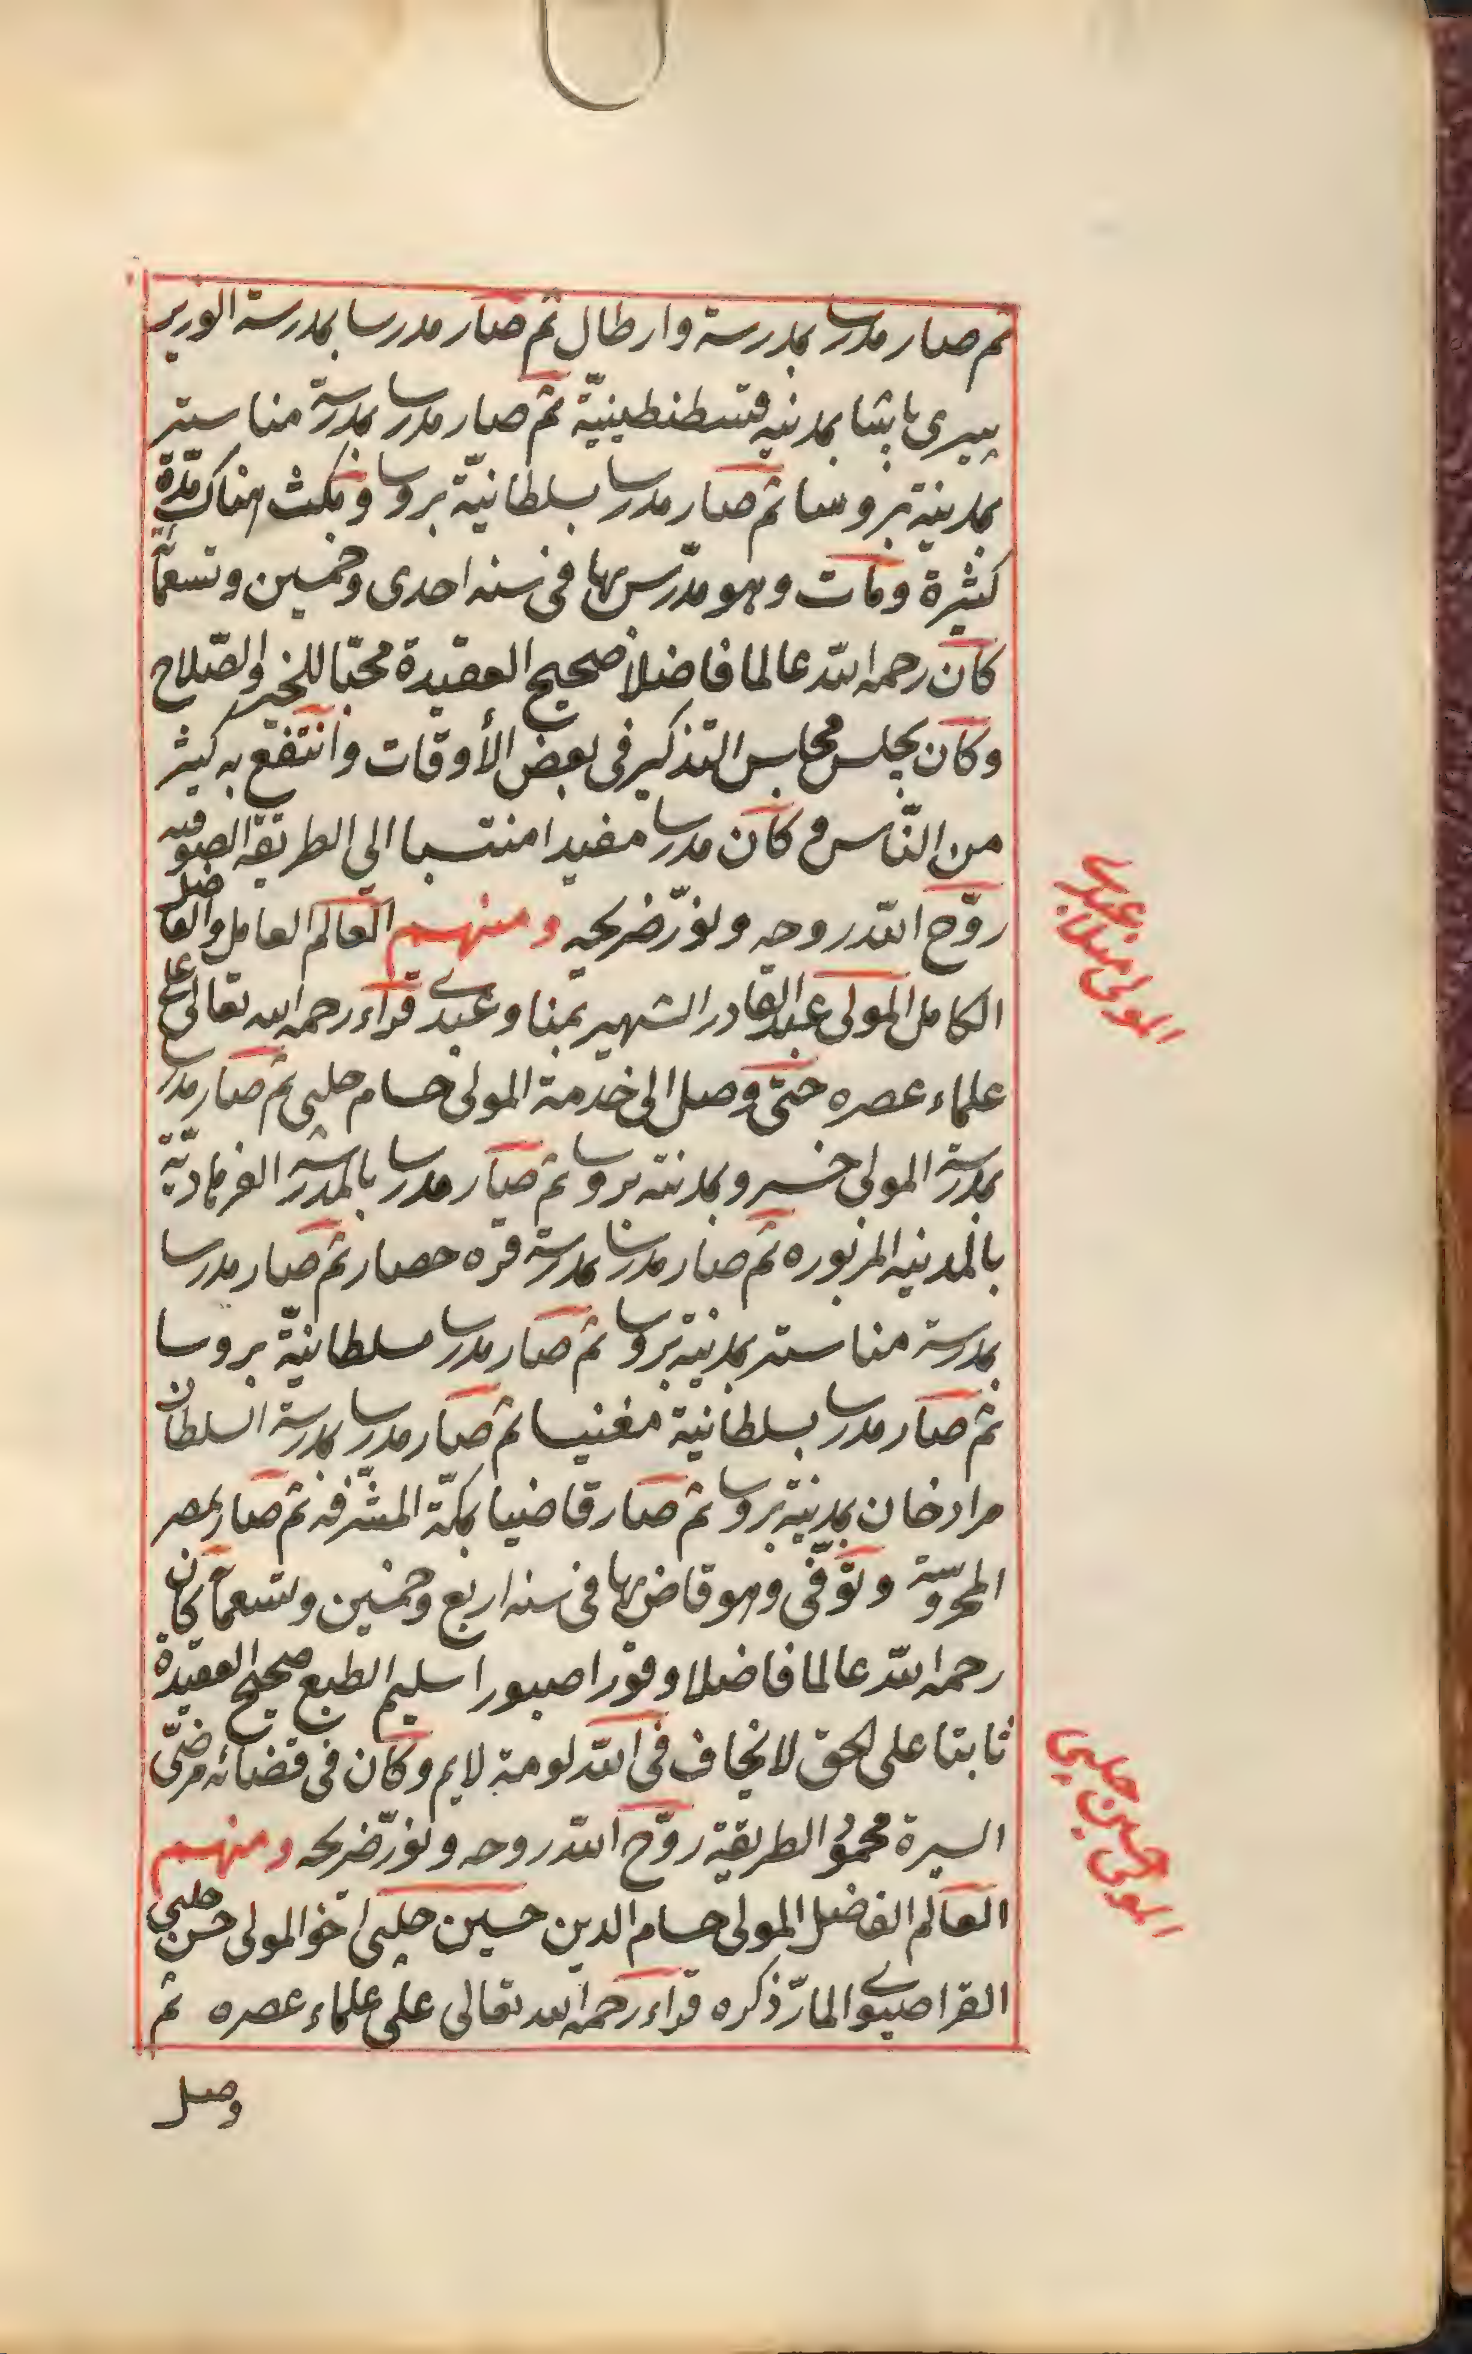 ثم صار مدرسا بمدرسة وارطال ثم صار مدرسا بمدرسة الوزير
پيرى پاشا بمدنيه قسطنطينيّة ثم صار مدرسا بمدرسة مناستر
بمدينة بروسا ثم صار مدرسا بسلطانيّة بروسا ومكث هناك مدّة
كثيرة ومات وهو مدّرس بها فى سنه احدى وخمسين وتسعمأئة
كان رحمه الله عالما فاضلا صحيح العقيدة محبّا للخير والصّلاح
وكان يجلس مجالس التذكير فى بعض الأوقات وانتفع به كثير
من النّاس وكان مدرسا مفيدا منتسبا الى الطريقة الصوفيه
روّح الله روحه ونوّر ضريحه ومنهم العالم العامل والفاضل
الكامل المولى عبدالقادر الشهير بمناوعبدى قراء رحمه الله تعالى على
علماء عصره حتى وصل الى خدمة المولى حسام چلبى ثم صار مدرسا
بمدرسة المولى خسرو بمدينه بروسا ثم صار مدرسا بالمدرسة الفرهاديّة
بالمدنيه المزبوره ثم صار مدرسا بمدرسة قره حصار ثم صار مدرسا
بمدرسة مناستر بمدنية بروسا ثم صار مدرسا بسلطانيّة بروسا
ثم صار مدرسا بسلطانية مغنيسا ثم صار مدرسا بمدرسة السلطان
مرادخان بمدنية بروسا ثم صار قاضيا بمكّة المشرّفه ثم صار بمصر
المحروسة وتوفّى وهو قاض بها فى سنه اربع وخمسين وتسعمأئة كان
رحمه الله عالما فاضلا وقورا صبورا سليم الطبع صحيح العقيدة
ثابتا على الحق لا يخاف فى الله لومة لايم وكان فى قضائه مرضىّ
السيرة محمود الطريقة روّح الله روحه ونوّر ضريحه ومنهم
العالم الفاضل المولى حسام الدين حسين چلبى اخو المولى حسن چلبى
القراصيوى المارّ ذكره قراء رحمه الله تعالى على علماء عصره ثم
وصل
المولى مناوعبدى
المولى حسين چلبى